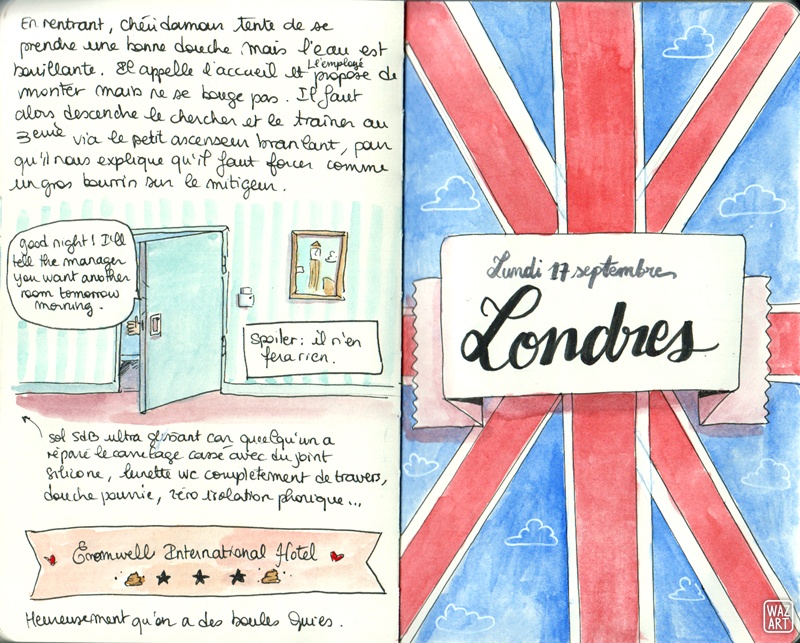 En rentrant, chéri damour tente de se
prendre une bonne douche mais l'eau est
bouillante. Il appelle l'accueil et L'employé propose de
monter mais ne se bouge pas. Il faut
alors descendre le chercher et le traîner au
3eme via le petit ascenseur branlant, pour
qu'il nous explique qu'il faut forcer comme
un gros bourrin sur le mitigeur.
good night! I'll
tell the manager
you want another
room tomorrow
morning.
Spoiler: il n'en
fera rien.
sol SdB ultra glissant car quelqu'un a
réparé le carrelage cassé avec du joint
silicone, lunette WC complètement de travers,
douche pourrie, zéro isolation phonique...
Cromwell International Hotel
Heureusement qu'on a des boules Quies.
Lundi 17 septembre
Londres
WAZ
ART